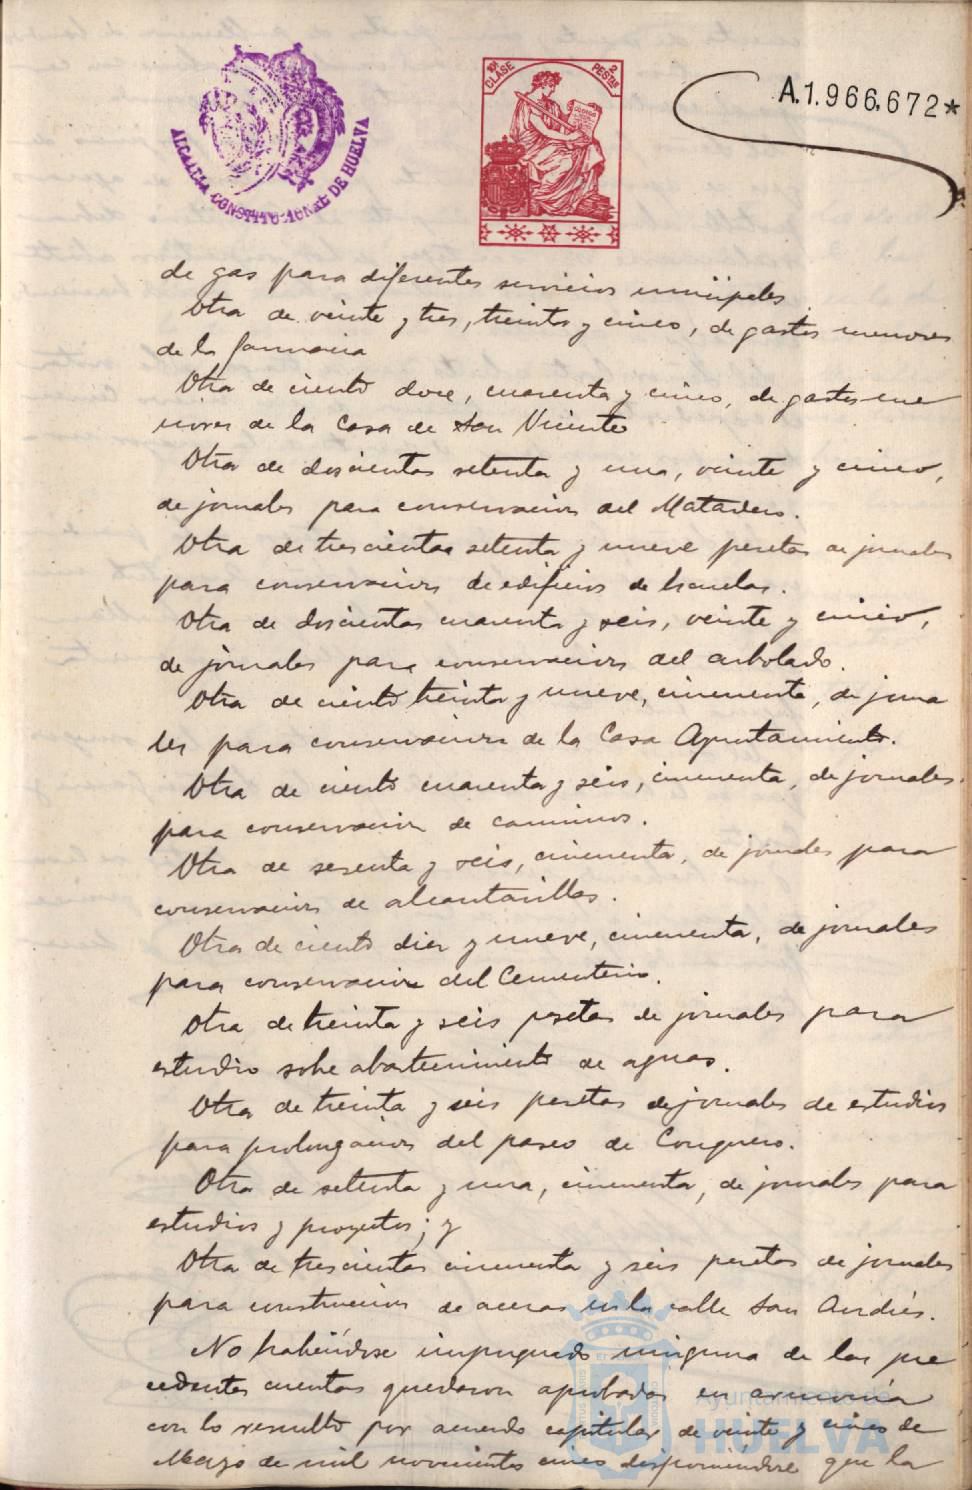 ALCALDIA CONSTITUCIONAL DE HUELVA
10ª CLASE
2 PESTAS
A.1.966.672*
de gas para diferentes servicios municipales
Otra de veinte y tres, treinta y cinco, de gastos menores
de la farmacia
Otra de ciento doce, cuarenta y cinco, de gastos me
nores de la Casa de San Vicente
Otra de doscientas setenta y una, veinte y cinco,
de jornales para conservacion del Matadero.
Otra de trescientas setenta y nueve pesetas de jornales
para conservacion de edificios de Escuelas.
Otra de doscientas cuarenta y seis, veinte y cinco,
de jornales para conservacion del arbolado.
Otra de ciento treinta y nueve, cincuenta, de jorna
les para conservacion de la Casa Ayuntamiento.
Otra de ciento cuarenta y seis, cincuenta, de jornales
para conservacion de caminos.
Otra de sesenta y seis, cincuenta, de jornales para
conservacion de alcantarillas.
Otra de ciento diez y nueve, cincuenta, de jornales
para conservacion del Cementerio.
Otra de treinta y seis pesetas de jornales para
estudio sobre abastecimiento de aguas.
Otra de treinta y seis pesetas de jornales de estudios
para prolongacion del paseo de Conquero.
Otra de setenta y una, cincuenta, de jornales para
estudios y proyectos; y
Otra de trescientas cincuenta y seis pesetas de jornales
para construccion de aceras en la calle San Andrés.
No habiéndose impugnado ninguna de las pre
cedentes cuentas quedaron aprobadas en armonía
con lo resuelto por acuerdo capitular de veinte y cinco de
Marzo de mil novecientos cinco disponiendose que la
Ayuntamiento de
HUELVA